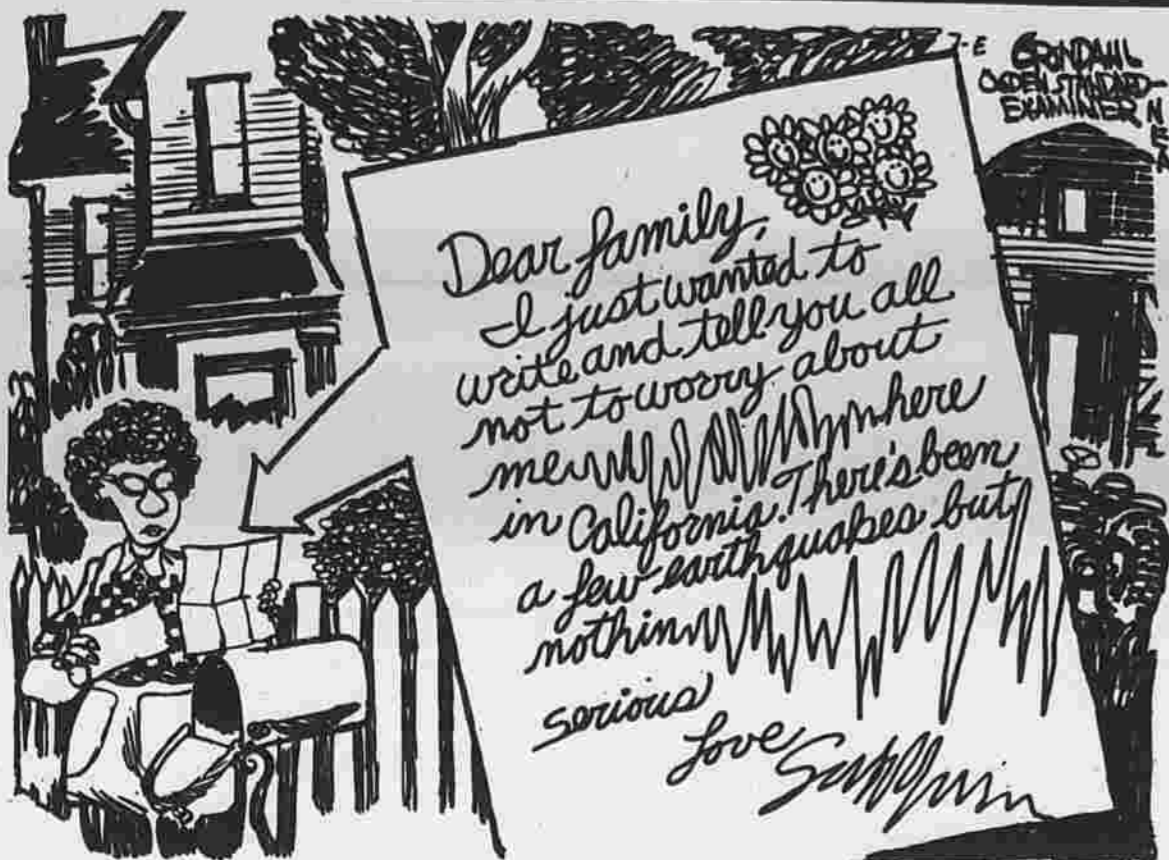 GRONDAHL
OGDEN STANDARD-
EXAMINER
NEA
Dear family,
I just wanted to
write and tell you all
not to worry about
me here
in California. There's been
a few earthquakes but
nothin
serious
Love